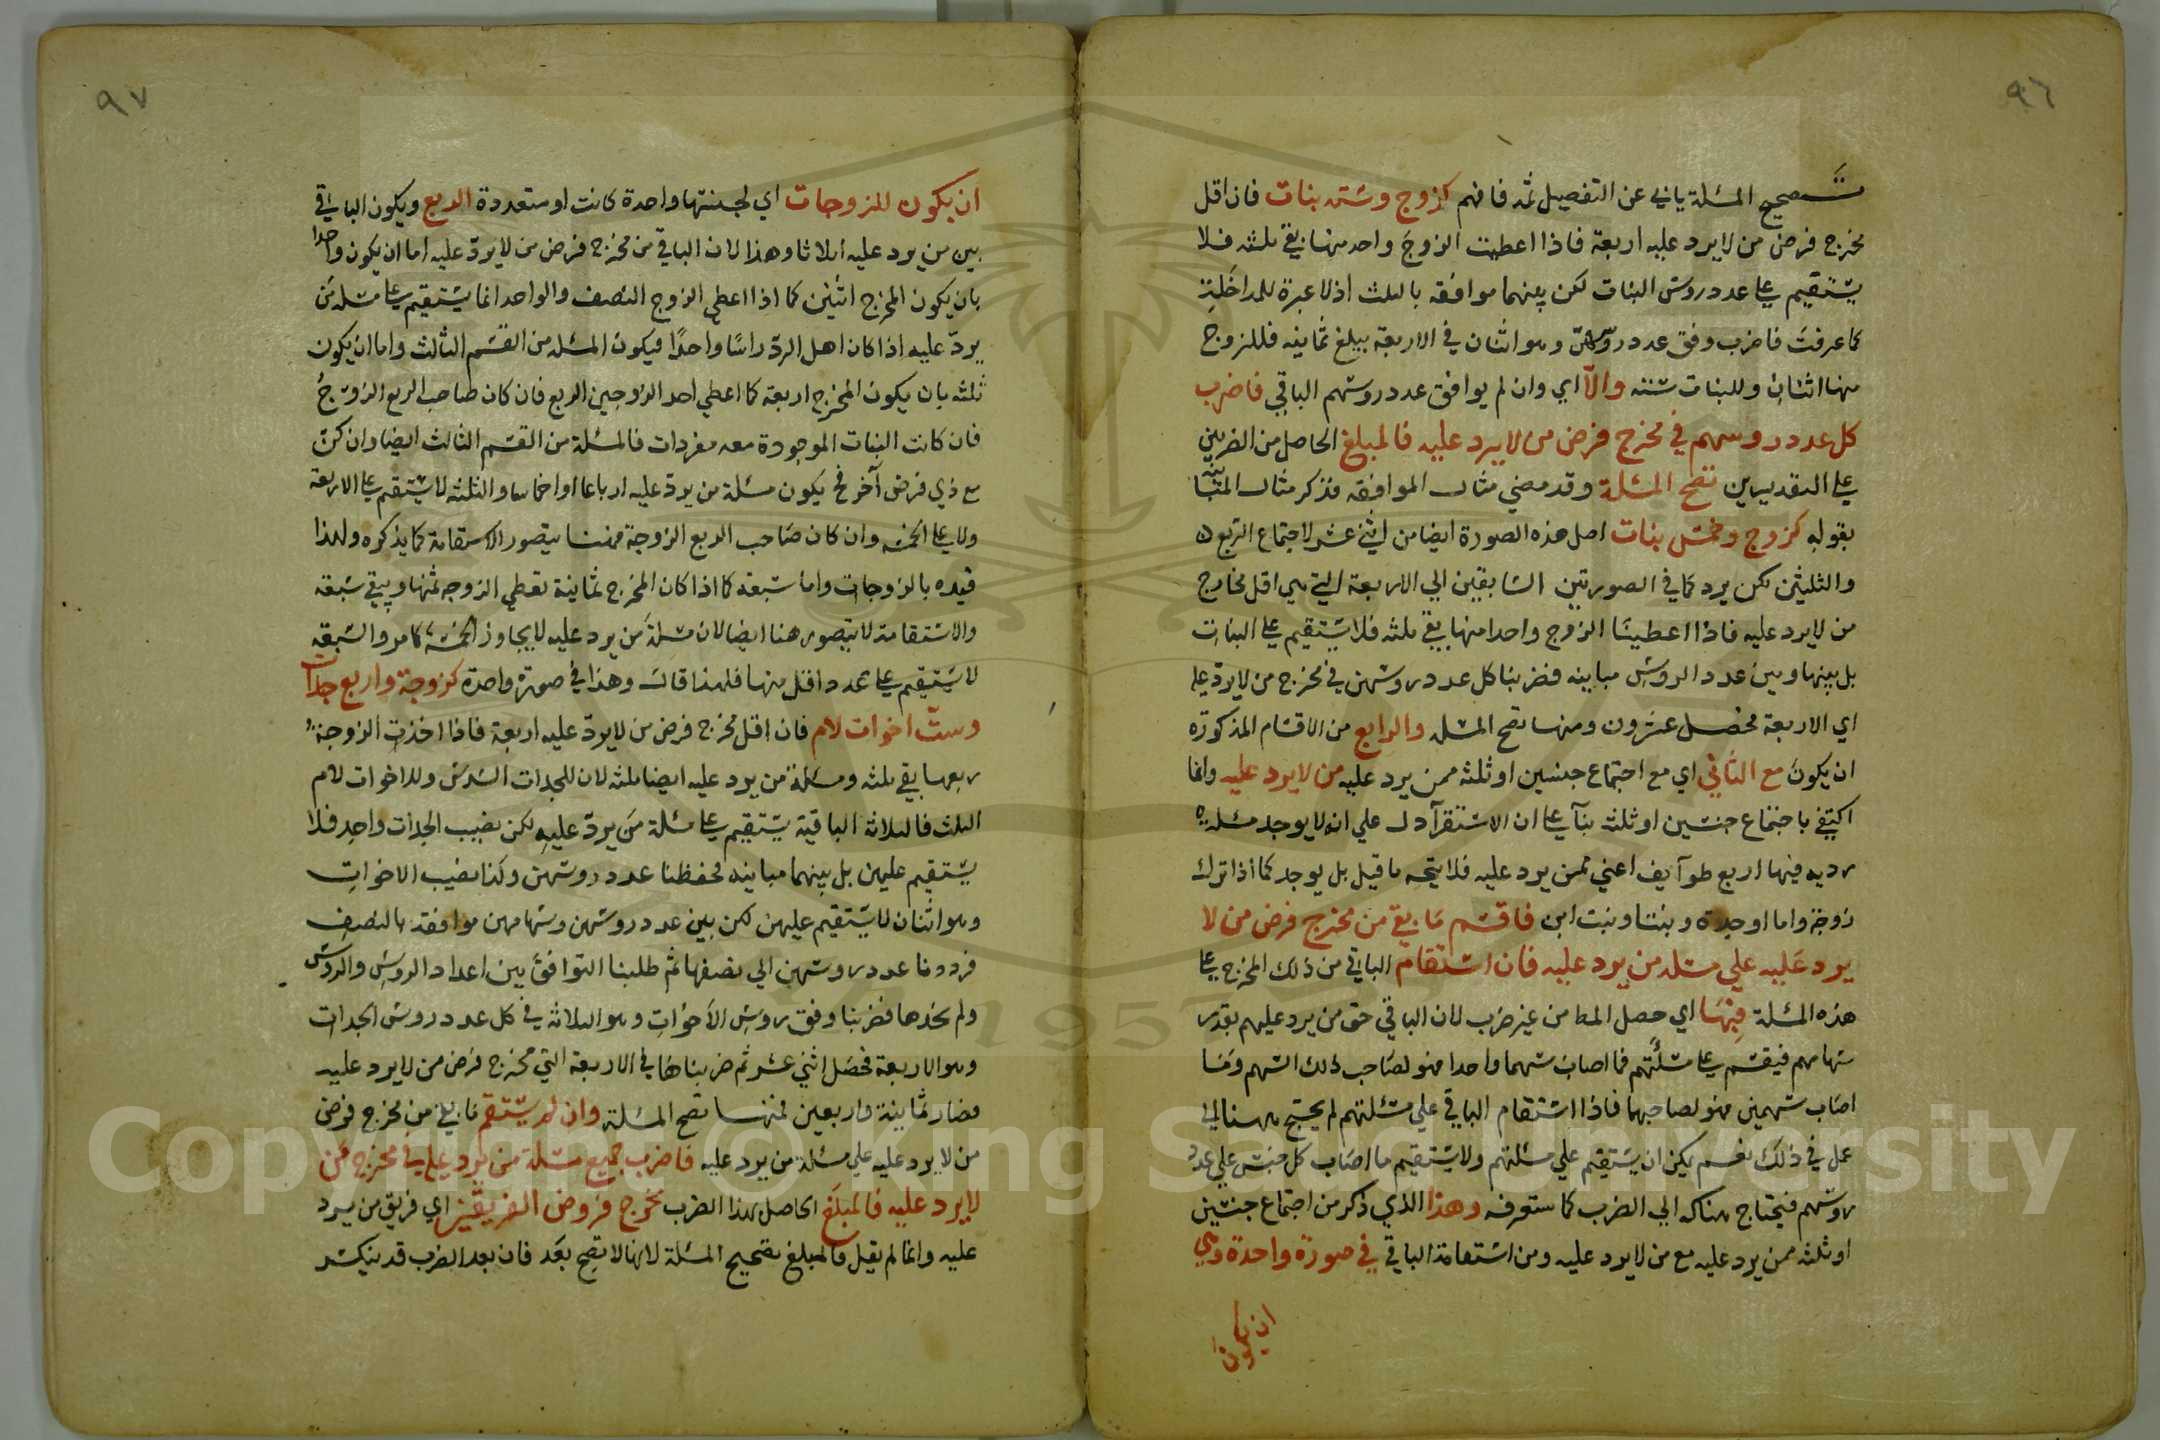 ٩٦
تصحيح المسئلة يابي عن التفصيل ثمه فافهم كزوج وستة بنات فان اقل
مخرج فرض من لا يرد عليه اربعة فاذا اعطيت الزوج واحد منها بقي ثلثه فلا
يستقيم علي عدد روس البنات لكن بينهما موافقه بالثلث اذ لا عبرة للمداخلة
كما عرفت فاضرب وفق عدد روسهن وهو اثنان في الاربعة يبلغ ثمانيه فللزوج
منها اثنان وللبنات ستة والا اي وان لم يوافق عدد روسهم الباقي فاضرب
كل عدد روسهم في مخرج فرض من لا يرد عليه فالمبلغ الحاصل من الضربين
علي التقديرين تصح المسئلة وقد مضي مثال الموافقه فذكر مثال المباينة
بقوله كزوج وخمس بنات اصل هذه الصورة ايضا من اثني عشر لاجتماع الربع
والثلثين لكن يرد كما في الصورتين السابقين الي الاربعة التي هي اقل مخارج
من لا يرد عليه فاذا اعطينا الزوج واحدا منها يبقي ثلثه فلا يستقيم علي البنات
بل بينها وبين عدد الروس مباينه فضربنا كل عدد روسهن في مخرج من لا يرد عليه
اي الاربعة فحصل عشرون ومنها تصح المسئله والرابع من الاقسام المذكورة
ان يكون مع الثاني اي مع اجتماع جنسين او ثلثه ممن يرد عليه من لا يرد عليه وانما
اكتفي باجتماع جنسين او ثلثه بنآ علي ان الاستقرآ دل علي انه لا يوجد مسئله
رديه فيها اربع طوآيف اعني ممن يرد عليه فلا يتجه ما قيل بل يوجد كما اذا ترك
زوجة واما او جدة وبنتا وبنت ابن فاقسم ما بقي من مخرج فرض من لا
يرد عليه علي مسئلة من يرد عليه فان استقام الباقي من ذلك المخرج علي
هذه المسئلة فبها اي حصل المط من غير ضرب لان الباقي حق من يرد عليهم بقدر
سهامهم فيقسم علي مسئلتهم فما اصاب سهما واحدا فهو لصاحب ذلك السهم وما
اصاب سهمين فهو لصاحبها فاذا استقام الباقي علي مسئلتهم لم يحتج ههنا الي
عمل في ذلك نعم يمكن ان يستقيم علي مسئلتهم ولا يستقيم ما اصاب كل جنس علي عدد
روسهم فيحتاج هناك الي الضرب كما ستعرفه وهذا الذي ذكر من اجتماع جنسين
او ثلثه ممن يرد عليه مع من لا يرد عليه ومن استقامة الباقي في صورة واحدة وهي
ان يكون
٩٧
ان يكون للزوجات اي لجنسها واحدة كانت او متعددة الربع ويكون الباقي
بين من يرد عليه اثلاثا وهذا لان الباقي من مخرج فرض من لا يرد عليه اما ان يكون واحدا
بان يكون المخرج اثنين كما اذا اعطي الزوج النصف والواحد انما يستقيم علي مسئله من
يرد عليه اذا كان اهل الرد راسا واحدا فيكون المسئله من القسم الثالث واما ان يكون
ثلثه بان يكون المخرج اربعة كما اعطي احد الزوجين الربع فان كان صاحب الربع الزوج
فان كانت البنات الموجودة معه مفردات فالمسئلة من القسم الثالث ايضا وان كن
مع ذي فرض آخر فح يكون مسئلة من يرد عليه ارباعا او اخماسا والثلثه لا يستقيم علي الاربعة
ولا علي الخمسه وان كان صاحب الربع الزوجة فههنا يتصور الاستقامة كما يذكره ولهذا
قيده بالزوجات واما سبعة كما اذا كان المخرج ثمانية تعطي الزوجه ثمنها ويبقي سبعه
والاستقامة لا يتصور هنا ايضا لان مسئلة من يرد عليه لا يجاوز الخمسة كما مر والسبعه
لا يستقيم علي عدد اقل منها فلهذا قال وهذا في صورة واحدة كزوجة واربع جدات
وست اخوات لام فان اقل مخرج فرض من لا يرد عليه اربعة فاذا اخذت الزوجة
ربعها بقي ثلثه ومسئلة من يرد عليه ايضا ثلثه لان للجدات السدس وللاخوات لام
الثلث فالثلاثة الباقية يستقيم علي مسئلة من يرد عليه لكن نصيب الجدات واحد فلا
يستقيم عليهن بل بينهما مباينه فحفظنا عدد روسهن وكذا نصيب الاخوات
وهو اثنان لا يستقيم عليهن لكن بين عدد روسهن وسهامهن موافقة بالنصف
فرددنا عدد روسهن الي نصفها ثم طلبنا التوافق بين اعداد الروس والروس
ولم نجدها فضربنا وفق روس الاخوات وهو الثلاثه في كل عدد روس الجدات
وهو الاربعة فحصل اثني عشر ثم ضربناها في الاربعة التي مخرج فرض من لا يرد عليه
فصار ثمانية واربعين فمنها تصح المسئلة وان لم يستقم ما بقي من مخرج فرض
من لا يرد عليه علي مسئلة من يرد عليه فاضرب جميع مسئلة من يرد عليه في مخرج من
لا يرد عليه فالمبلغ الحاصل بهذا الضرب مخرج فروض الفريقين اي فريق من يرد
عليه وانما لم يقل فالمبلغ تصحيح المسئلة لانها لا تصح بعد فان بعد الضرب قد ينكسر